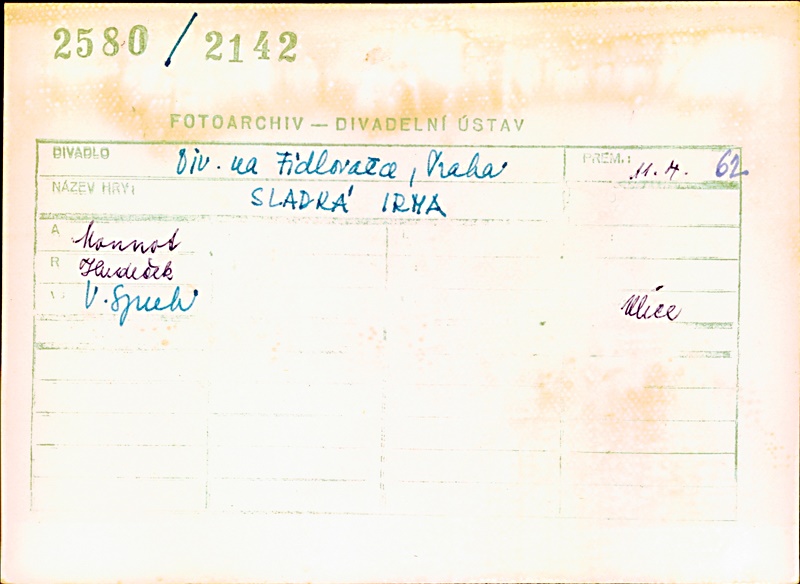 2580 / 2142
FOTOARCHIV — DIVADELNÍ ÚSTAV
DIVADLO Div. na Fidlovačce, Praha PREM.: 11. 4. 62
NÁZEV HRY: SLADKÁ IRMA
A Monnot
R Hudeček
V. Synek
Ulice